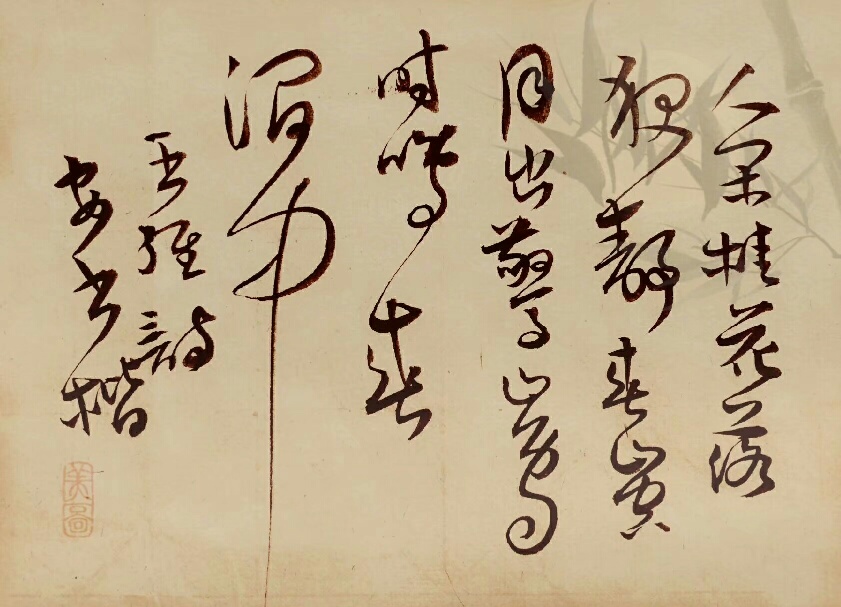 人闲桂花落
夜静春山空
月出驚山鸟
时鸣春
涧中
王维诗
美圖